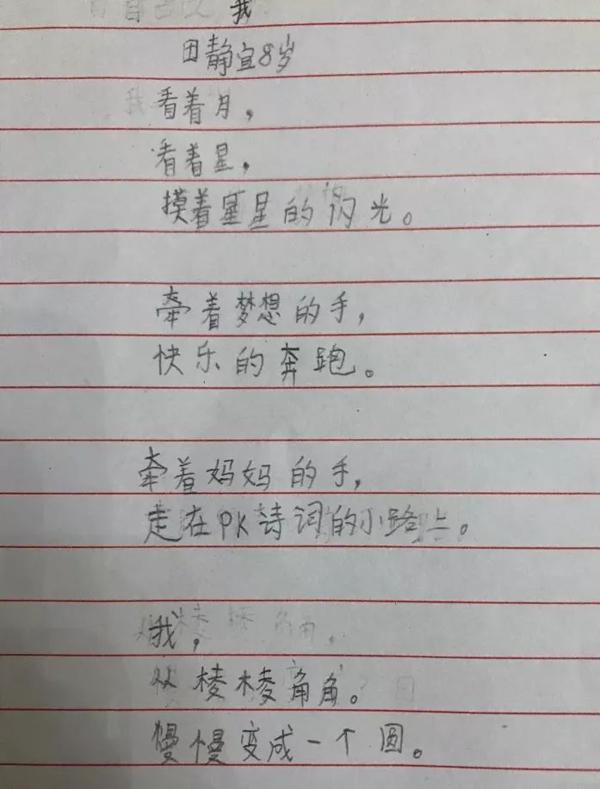 我
田静宜8岁
看着月，
看着星，
摸着塞星的闪光。
牵着梦想的手，
快乐的奔跑。
牵着妈妈的手，
走在PK诗词的小路上。
我，
从棱棱角角。
慢慢变成一个圆。